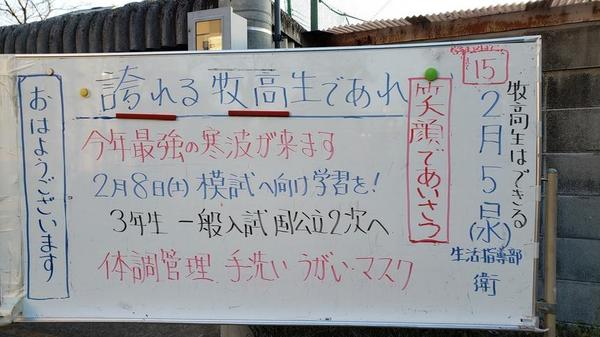 牧高生はできる
15
2月5日(水)
生活指導部
衛
笑顔であいさつ
誇れる牧高生であれ
今年最強の寒波が来ます
2月8日(土)模試へ向け学習を!
3年生 一般入試 国公立2次へ
体調管理 手洗い うがい マスク
おはようございます